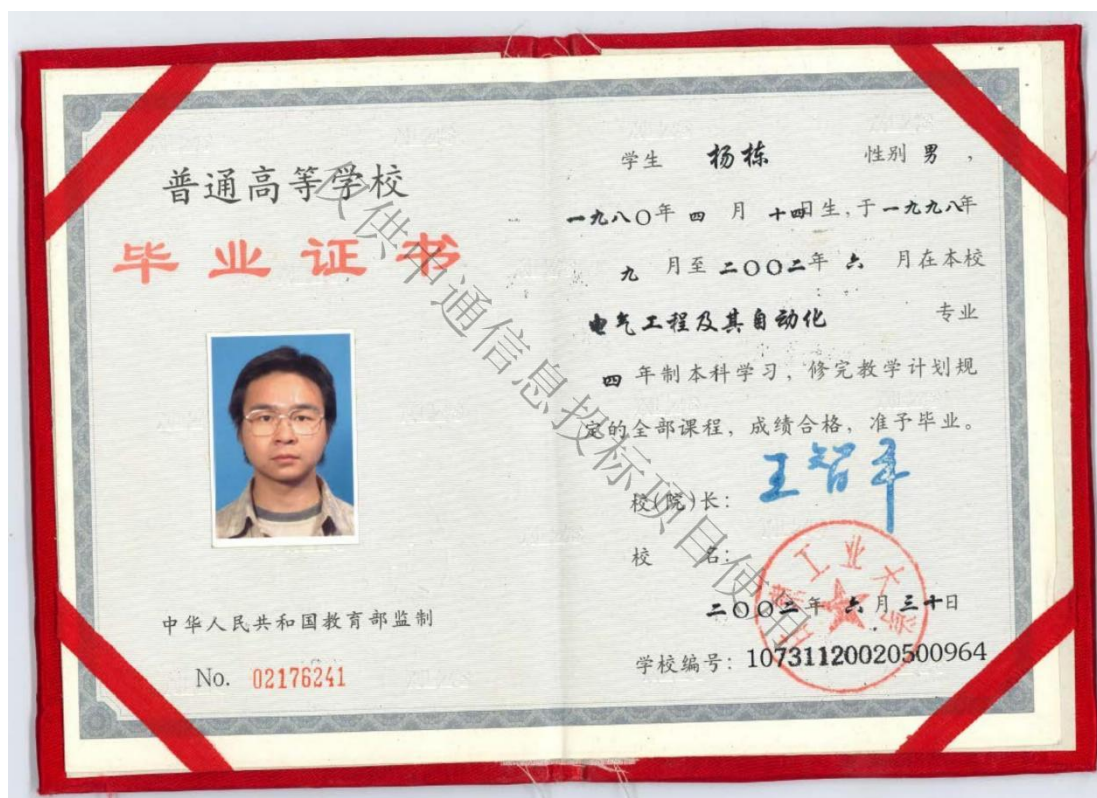 普通高等学校
毕业证书
中华人民共和国教育部监制
No. 02176241
学生 杨栋 性别 男，
一九八〇年 四 月 十四日生，于一九九八年
九 月至 二〇〇二年 六 月在本校
电气工程及其自动化 专业
四 年制本科学习，修完教学计划规
定的全部课程，成绩合格，准予毕业。
校(院)长：王智平
校 名：
二〇〇二年 六月三十日
学校编号：10731120020500964
工业大学
仅供中通信息投标项目使用